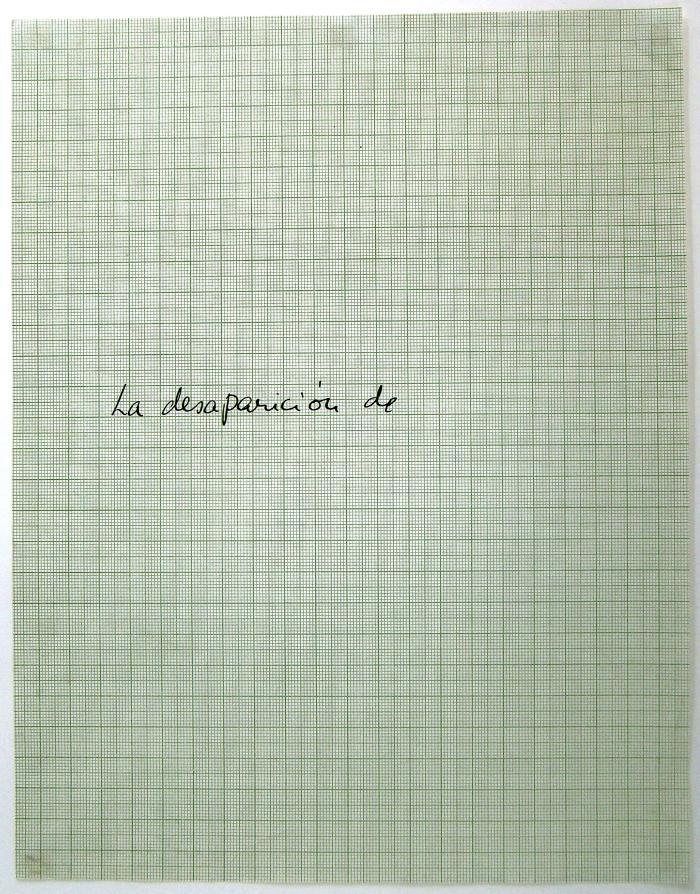 La desaparición de